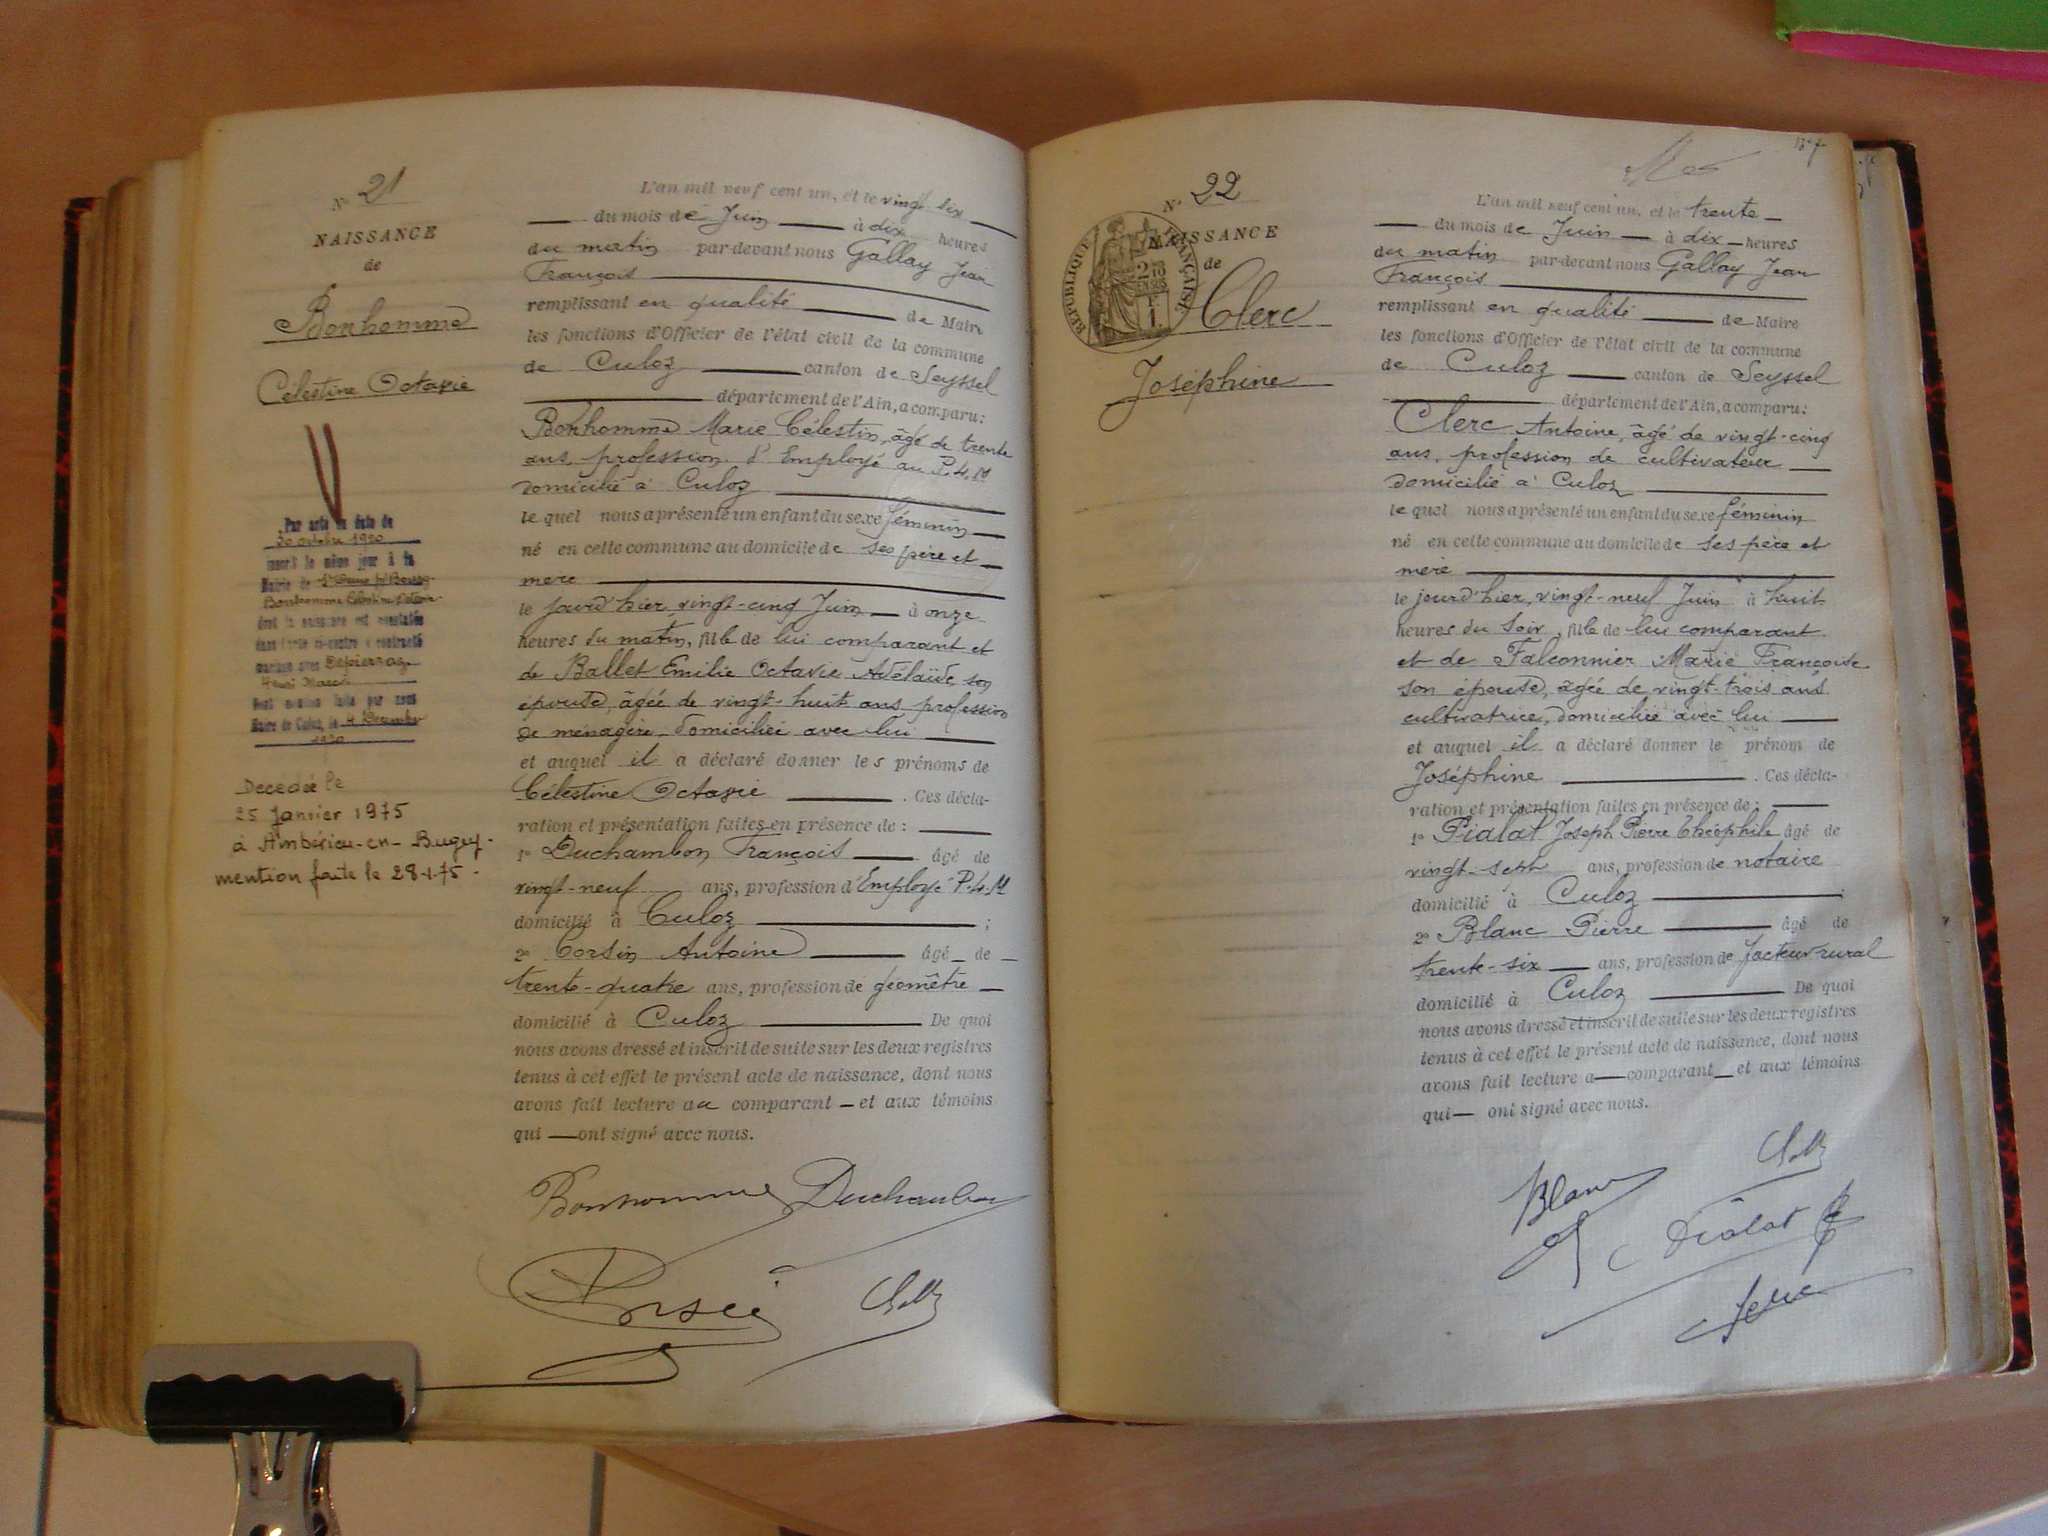 N° 21
NAISSANCE
de
Bonhomme
Célestine Octavie
Par acte en date de
30 octobre 1920
inscrit le même jour à la
Mairie de
Bonhomme Célestine Octavie
dont la naissance est constatée
dans l'acte ci-contre a contracté
mariage avec Depierraz
Henri Marcel
Dont mention faite par nous
Maire de Culoz, le 4 Décembre
1920
Décédée le
25 Janvier 1975
à Ambérieu-en-Bugey.
mention faite le 28-1-75.
L'an mil neuf cent un, et le vingt six
du mois de Juin à dix heures
du matin par-devant nous Gallay Jean
François
remplissant en qualité de Maire
les fonctions d'Officier de l'état civil de la commune
de Culoz canton de Seyssel
département de l'Ain, a comparu:
Bonhomme Marie Célestin, âgé de trente
ans, profession d'Employé au P.L.M
domicilié à Culoz
le quel nous a présenté un enfant du sexe féminin
né en cette commune au domicile de ses père et
mère
le jourd'hier, vingt-cinq Juin à onze
heures du matin, fille de lui comparant et
de Ballet Emilie Octavie Adélaïde, son
épouse, âgée de vingt-huit ans profession
de ménagère, domiciliée avec lui
et auquel il a déclaré donner les prénoms de
Célestine Octavie . Ces décla-
ration et présentation faites en présence de :
1° Duchambon François âgé de
vingt-neuf ans, profession d'Employé P.L.M
domicilié à Culoz ;
2° Corsin Antoine âgé de
trente-quatre ans, profession de géomètre
domicilié à Culoz De quoi
nous avons dressé et inscrit de suite sur les deux registres
tenus à cet effet le présent acte de naissance, dont nous
avons fait lecture au comparant et aux témoins
qui ont signé avec nous.
Bonhomme Duchambon
N° 22
NAISSANCE
de
RÉPUBLIQUE FRANÇAISE
Clerc
Joséphine
L'an mil neuf cent un, et le trente
du mois de Juin à dix heures
du matin par-devant nous Gallay Jean
François
remplissant en qualité de Maire
les fonctions d'Officier de l'état civil de la commune
de Culoz canton de Seyssel
département de l'Ain, a comparu:
Clerc Antoine, âgé de vingt-cinq
ans, profession de cultivateur
domicilié à Culoz
le quel nous a présenté un enfant du sexe féminin
né en cette commune au domicile de ses père et
mère
le jourd'hier, vingt-neuf Juin à huit
heures du soir, fille de lui comparant
et de Falconnier Marie Françoise
son épouse, âgée de vingt-trois ans
cultivatrice, domiciliée avec lui
et auquel il a déclaré donner le prénom de
Joséphine . Ces décla-
ration et présentation faites en présence de :
1° Pialat Joseph Pierre Théophile âgé de
vingt-sept ans, profession de notaire
domicilié à Culoz ;
2° Blanc Pierre âgé de
trente-six ans, profession de facteur rural
domicilié à Culoz De quoi
nous avons dressé et inscrit de suite sur les deux registres
tenus à cet effet le présent acte de naissance, dont nous
avons fait lecture a comparant et aux témoins
qui ont signé avec nous.
Blanc
Pialat
Clerc